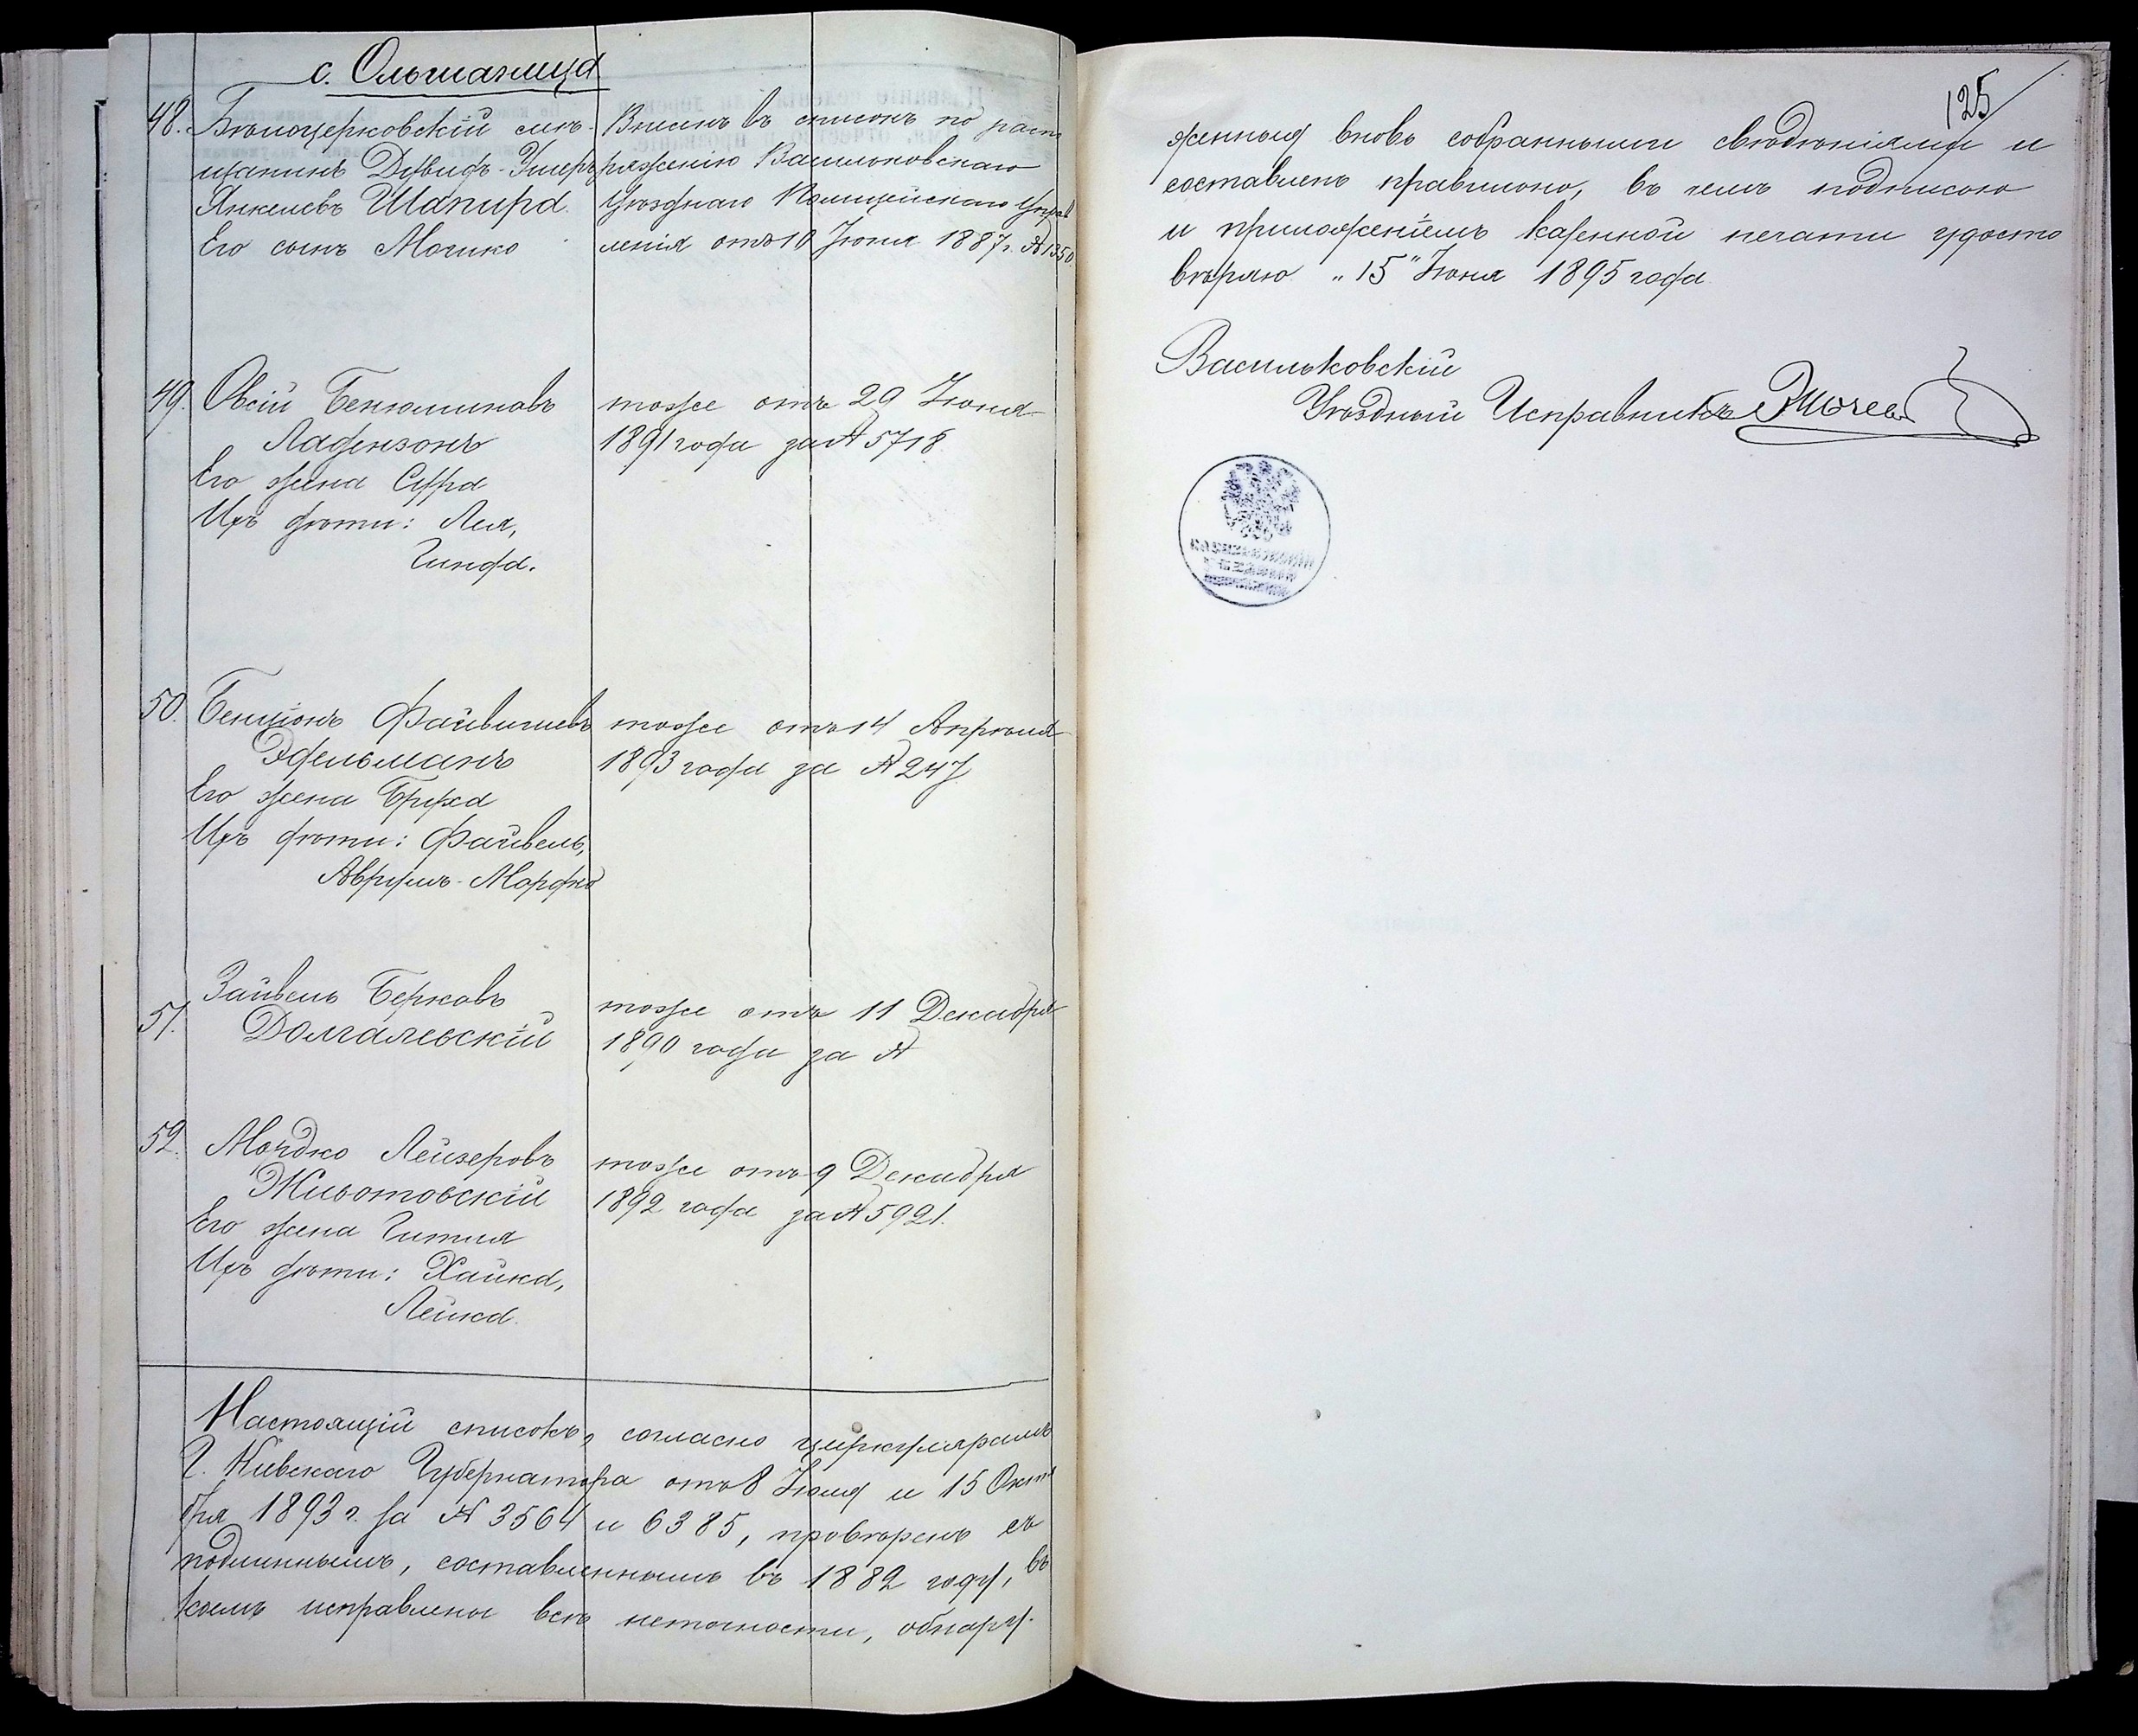 с. Ольшаница
48. Бѣлоцерковскій мѣ-
щанинъ Дувидъ-Ушеръ
Янкелевъ Шапира.
Его сынъ Мошко
Внесенъ въ списокъ по распо
ряженію Васильковскаго
Уѣзднаго Полицейскаго Управ
ленія отъ 10 Іюня 1887 г. № 1350
49. Овсій Бенюминовъ
Ладензонъ
Его жена Сура
Ихъ дѣти: Лея,
Гинда.
тоже отъ 29 Іюня
1891 года за № 5718
50. Бенціонъ Файвишевъ
Эдельманъ
Его жена Бруха
Ихъ дѣти: Файвель,
Аврумъ-Мордко
тоже отъ 14 Апрѣля
1893 года за № 247
51. Зайвель Берковъ
Долгалевскій
тоже отъ 11 Декабря
1890 года за №
52. Мордко Лейзеровъ
Животовскій
Его жена Гитля
Ихъ дѣти: Хайка,
Лейка.
тоже отъ 9 Декабря
1892 года за № 5921.
Настоящій списокъ, согласно циркулярамъ
Г. Кіевскаго Губернатора отъ 8 Іюля и 15 Октя
бря 1893 г. за № 3564 и 6385, провѣренъ съ
подлиннымъ, составленнымъ въ 1882 году, въ
коемъ исправлены всѣ неточности, обнару-
125
женныя вновь собранными свѣдѣніями и
составленъ правильно, въ чемъ подписью
и приложеніемъ казенной печати удосто
вѣряю "15" Іюня 1895 года
Васильковскій
Уѣздный Исправникъ